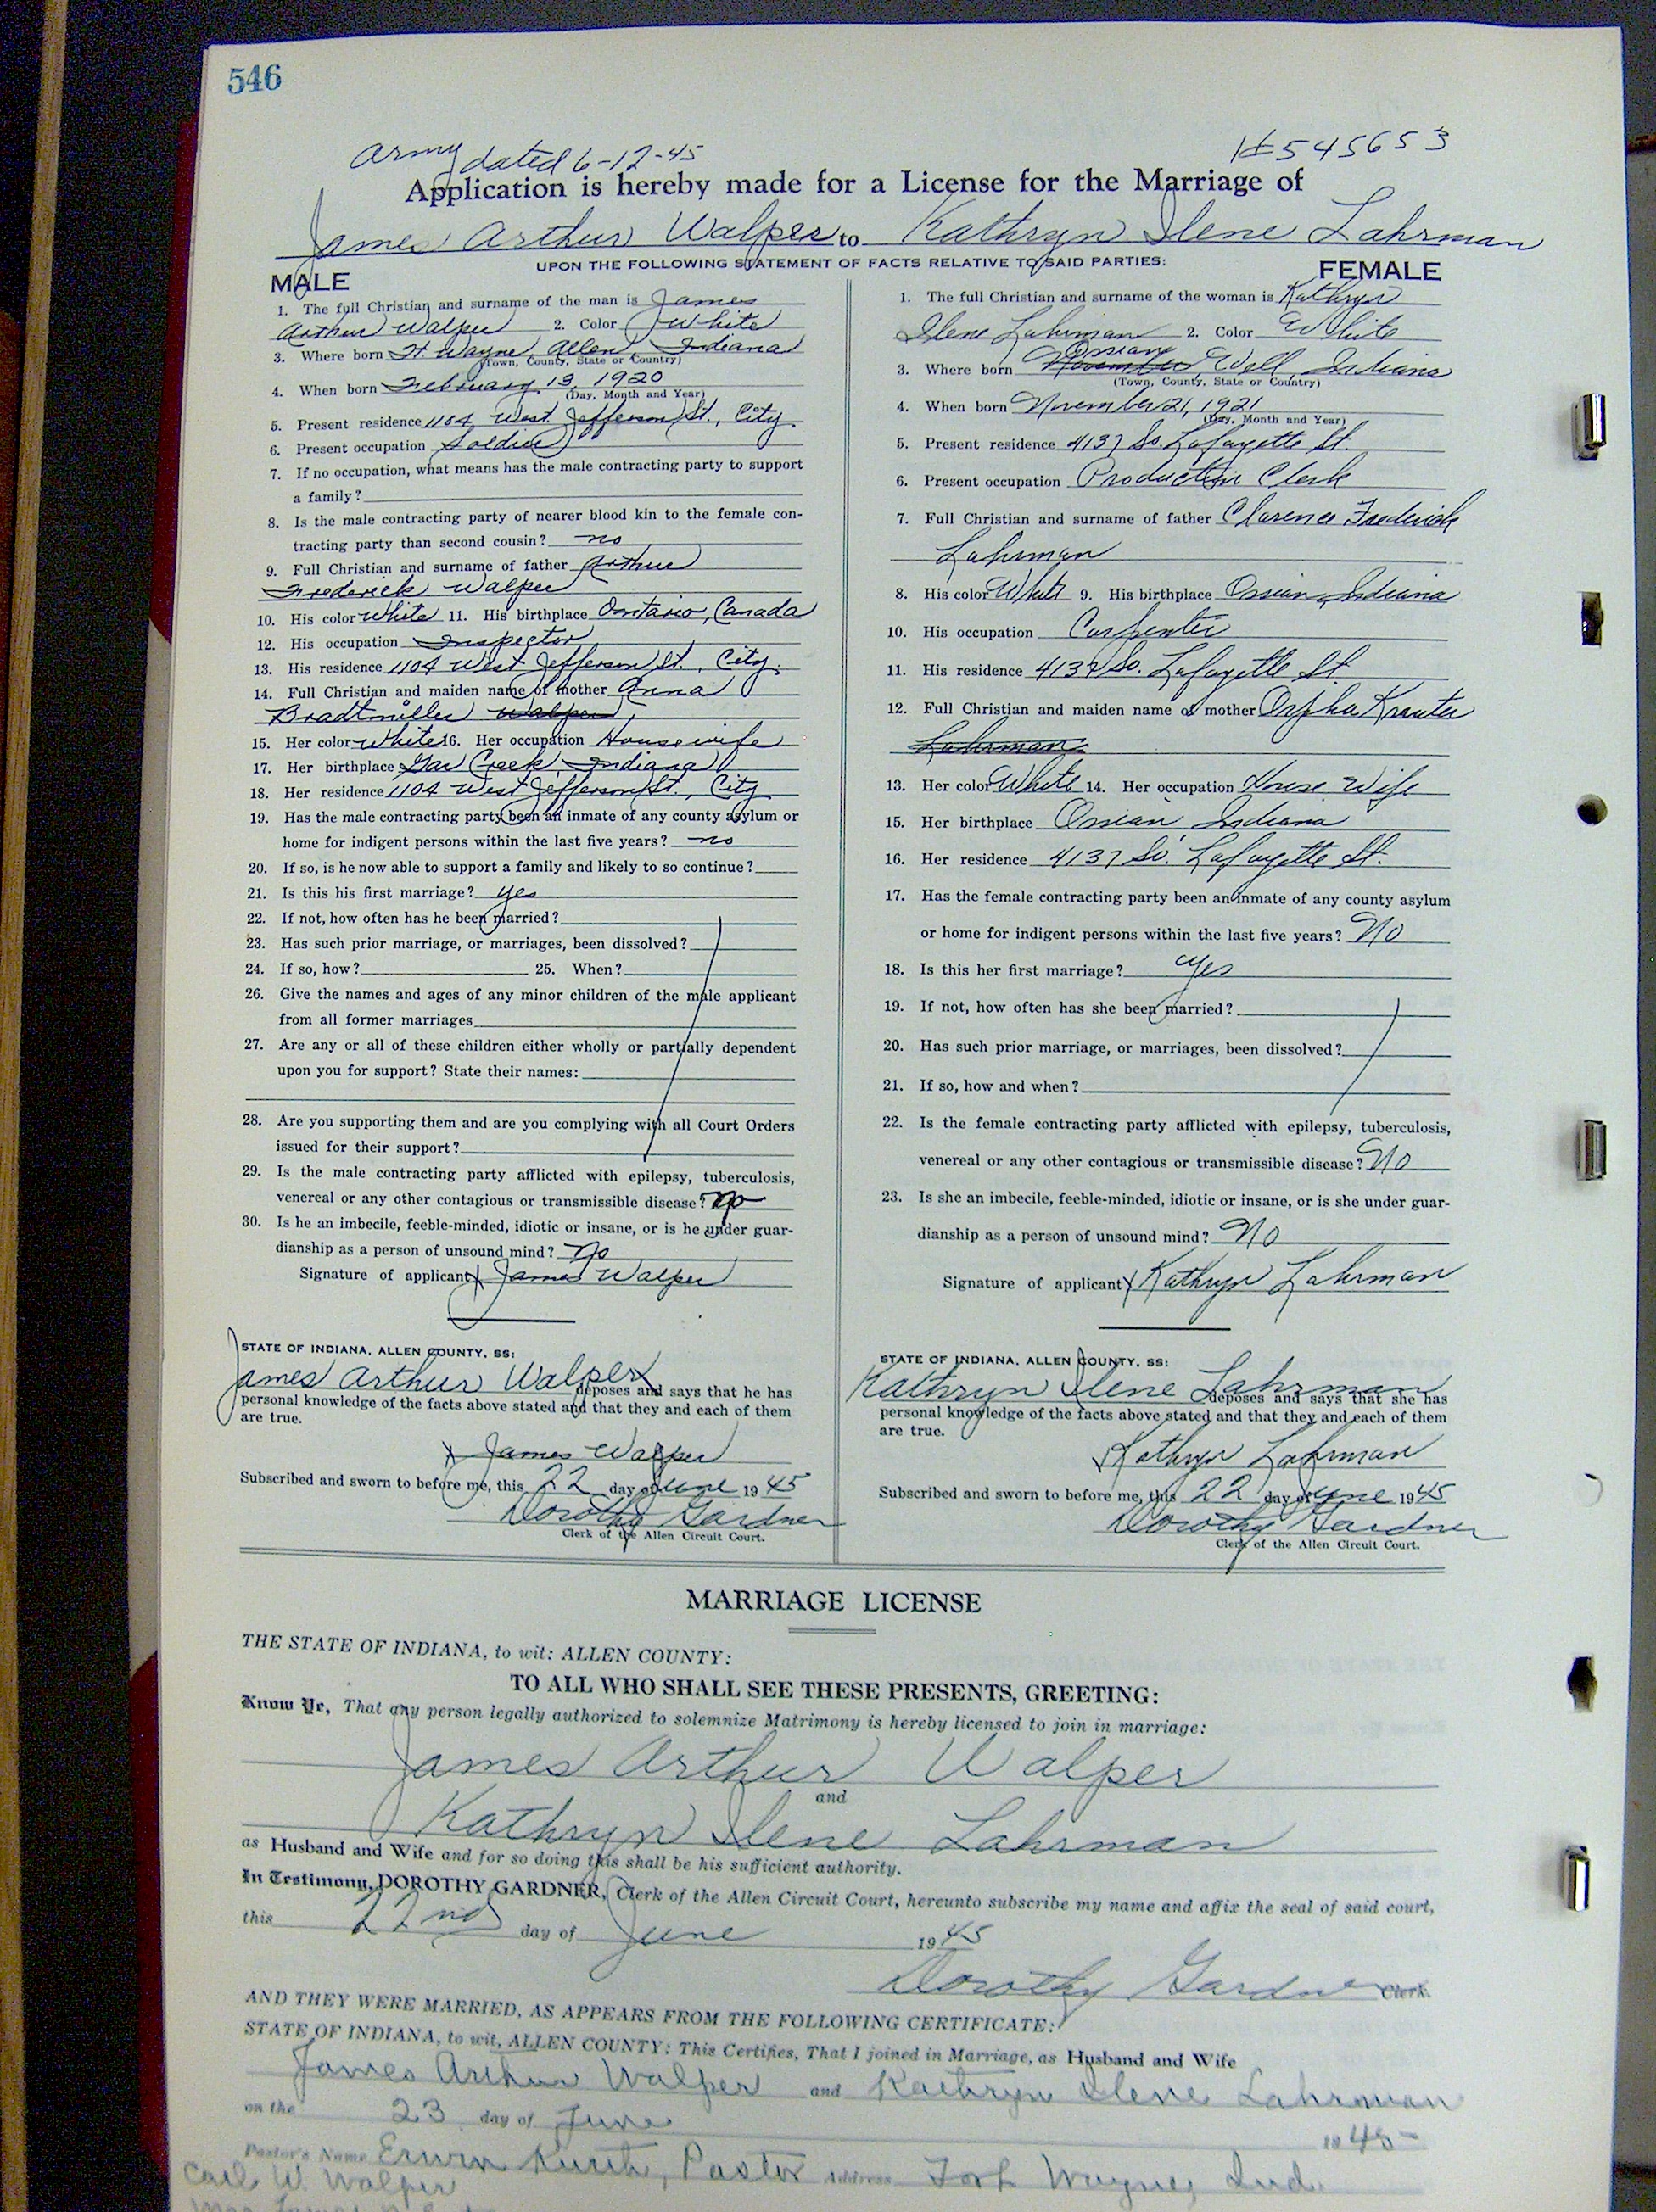 546
Army dated 6-12-45 #545653
Application is hereby made for a License for the Marriage of
James Arthur Walper to Kathryn Ilene Lahrman
UPON THE FOLLOWING STATEMENT OF FACTS RELATIVE TO SAID PARTIES:
MALE
1. The full Christian and surname of the man is James
Arthur Walper 2. Color White
3. Where born Ft. Wayne, Allen, Indiana
(Town, County, State or Country)
4. When born February 13, 1920
(Day, Month and Year)
5. Present residence 1104 West Jefferson St., City.
6. Present occupation Soldier
7. If no occupation, what means has the male contracting party to support
a family?
8. Is the male contracting party of nearer blood kin to the female con-
tracting party than second cousin? no
9. Full Christian and surname of father Arthur
Frederick Walper
10. His color White 11. His birthplace Ontario, Canada
12. His occupation Inspector
13. His residence 1104 West Jefferson St., City.
14. Full Christian and maiden name of mother Anna
Bradtmiller Walper
15. Her color White 16. Her occupation Housewife
17. Her birthplace Gar Creek, Indiana
18. Her residence 1104 West Jefferson St., City
19. Has the male contracting party been an inmate of any county asylum or
home for indigent persons within the last five years? no
20. If so, is he now able to support a family and likely to so continue?
21. Is this his first marriage? yes
22. If not, how often has he been married?
23. Has such prior marriage, or marriages, been dissolved?
24. If so, how? 25. When?
26. Give the names and ages of any minor children of the male applicant
from all former marriages
27. Are any or all of these children either wholly or partially dependent
upon you for support? State their names:
28. Are you supporting them and are you complying with all Court Orders
issued for their support?
29. Is the male contracting party afflicted with epilepsy, tuberculosis,
venereal or any other contagious or transmissible disease? no
30. Is he an imbecile, feeble-minded, idiotic or insane, or is he under guar-
dianship as a person of unsound mind? no
Signature of applicant X James Walper
STATE OF INDIANA, ALLEN COUNTY, SS:
James Arthur Walper deposes and says that he has
personal knowledge of the facts above stated and that they and each of them
are true.
X James Walper
Subscribed and sworn to before me, this 22 day of June 1945
Dorothy Gardner
Clerk of the Allen Circuit Court.
FEMALE
1. The full Christian and surname of the woman is Kathryn
Ilene Lahrman 2. Color White
Ossian
3. Where born November, Well, Indiana
(Town, County, State or Country)
4. When born November 21, 1921
(Day, Month and Year)
5. Present residence 4137 So. Lafayette St.
6. Present occupation Production Clerk
7. Full Christian and surname of father Clarence Frederick
Lahrman
8. His color White 9. His birthplace Ossian, Indiana
10. His occupation Carpenter
11. His residence 4137 So. Lafayette St.
12. Full Christian and maiden name of mother Orpha Krauter
Lahrman
13. Her color White 14. Her occupation House Wife
15. Her birthplace Ossian, Indiana
16. Her residence 4137 So. Lafayette St.
17. Has the female contracting party been an inmate of any county asylum
or home for indigent persons within the last five years? No
18. Is this her first marriage? Yes
19. If not, how often has she been married?
20. Has such prior marriage, or marriages, been dissolved?
21. If so, how and when?
22. Is the female contracting party afflicted with epilepsy, tuberculosis,
venereal or any other contagious or transmissible disease? No
23. Is she an imbecile, feeble-minded, idiotic or insane, or is she under guar-
dianship as a person of unsound mind? No
Signature of applicant X Kathryn Lahrman
STATE OF INDIANA, ALLEN COUNTY, SS:
Kathryn Ilene Lahrman deposes and says that she has
personal knowledge of the facts above stated and that they and each of them
are true.
X Kathryn Lahrman
Subscribed and sworn to before me, this 22 day of June 1945
Dorothy Gardner
Clerk of the Allen Circuit Court.
MARRIAGE LICENSE
THE STATE OF INDIANA, to wit: ALLEN COUNTY:
TO ALL WHO SHALL SEE THESE PRESENTS, GREETING:
Know Ye, That any person legally authorized to solemnize Matrimony is hereby licensed to join in marriage:
James Arthur Walper
and
Kathryn Ilene Lahrman
as Husband and Wife and for so doing this shall be his sufficient authority.
In Testimony, DOROTHY GARDNER, Clerk of the Allen Circuit Court, hereunto subscribe my name and affix the seal of said court,
this 22nd day of June 1945
Dorothy Gardner Clerk.
AND THEY WERE MARRIED, AS APPEARS FROM THE FOLLOWING CERTIFICATE:
STATE OF INDIANA, to wit, ALLEN COUNTY: This Certifies, That I joined in Marriage, as Husband and Wife
James Arthur Walper and Kathryn Ilene Lahrman
on the 23 day of June 1945
Pastor's Name Erwin Kurth, Pastor Address Fort Wayne, Ind.
Carl W. Walper
Mrs. James